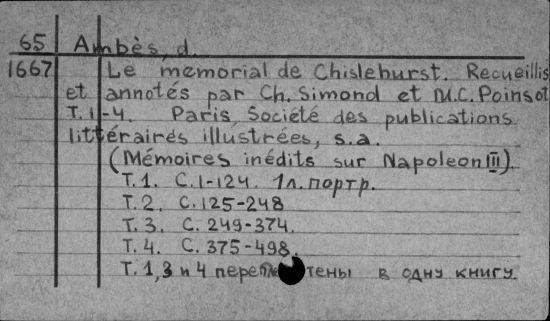 65 Ambès, d.
1667 Le memorial de Chislehurst. Recueillis
et annotés par Ch. Simond et M.C. Poinsot
T. 1-4. Paris, Société des publications
littéraires illustrées, s.a.
(Mémoires inédits sur Napoleon III).
Т. 1. С. 1-124. 1л. портр.
Т. 2. С. 125-248
Т. 3. С. 249-374.
Т. 4. С. 375-498.
Т. 1, 3 и 4 переплетены в одну книгу.